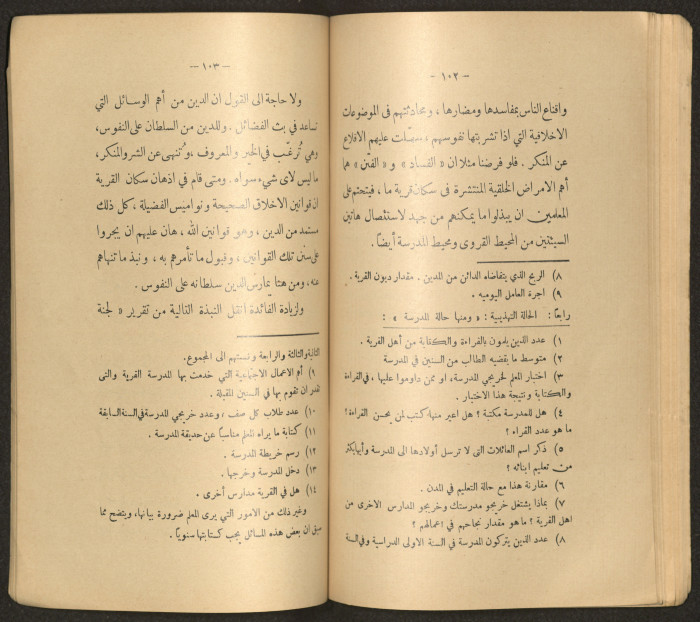 — ١٠٢ —
واقناع الناس بمفاسدها ومضارها، ومحادثتهم في الموضوعات
الاخلاقية التي اذا تشربتها نفوسهم سهلت عليهم الاقلاع
عن المنكر. فلو فرضنا مثلا ان « الفساد » و « الفتن » هما
أهم الامراض الخلقية المنتشرة في سكان قرية ما، فيتحتم على
المعلمين ان يبذلوا ما يمكنهم من جهد لاستئصال هاتين
السيئتين من المحيط القروي ومحيط المدرسة أيضاً.
٨) الربح الذي يتقاضاه الدائن من المدين. مقدار ديون القرية.
٩) اجرة العامل اليوميه.
رابعاً: الحالة التهذيبية: « ومنها حالة المدرسة »:
١) عدد الذين يلمون بالقراءة والكتابة من أهل القرية.
٢) متوسط ما يقضيه الطالب من السنين في المدرسة
٣) اختبار المعلم لخريجي المدرسة، او ممن داوموا عليها، في القراءة
والكتابة ونتيجة هذا الاختبار.
٤) هل للمدرسة مكتبة؟ هل اعير منها كتب لمن يحسن القراءة؟
ما هو عدد القراء؟
٥) ذكر اسم العائلات التى لا ترسل أولادها الى المدرسة وأيها يكثر
من تعليم ابنائه؟
٦) مقارنة هذا مع حالة التعليم في المدن.
٧) بماذا يشتغل خريجو مدرستك وخريجو المدارس الاخرى من
اهل القرية؟ ما هو مقدار نجاحهم في اعمالهم؟
٨) عدد الذين يتركون المدرسة في السنة الاولى الدراسية وفي السنة
— ١٠٣ —
ولا حاجة الى القول ان الدين من أهم الوسائل التي
تساعد في بث الفضائل. وللدين من السلطان على النفوس،
وهي تُرغّب في الخير والمعروف، وتُنهى عن الشر والمنكر،
ما ليس لاي شيء سواه. ومتى قام في اذهان سكان القرية
ان قوانين الاخلاق الصحيحة ونواميس الفضيلة، كل ذلك
مستمد من الدين، وهو قوانين الله، هان عليهم ان يجروا
على سنن تلك القوانين، وقبول ما تأمرهم به، ونبذ ما تنهاهم
عنه، ومن هنا يمارس الدين سلطانه على النفوس.
ولزيادة الفائدة انقل النبذة التالية من تقرير « لجنة
الثانية والثالثة والرابعة ونسبتهم الى المجموع.
٩) أم الاعمال الاجتماعية التي خدمت بها المدرسة القرية والتى
تقدر ان تقوم بها في السنين المقبلة.
١٠) عدد طلاب كل صف، وعدد خريجي المدرسة في السنة السابقة
١١) كتابة ما يراه المعلم مناسباً عن حديقة المدرسة.
١٢) رسم خريطة المدرسة.
١٣) دخل المدرسة وخرجها.
١٤) هل في القرية مدارس أخرى.
وغير ذلك من الامور التي يرى المعلم ضرورة بيانها، ويتضح مما
سبق ان بعض هذه المسائل يجب كتابتها سنوياً.